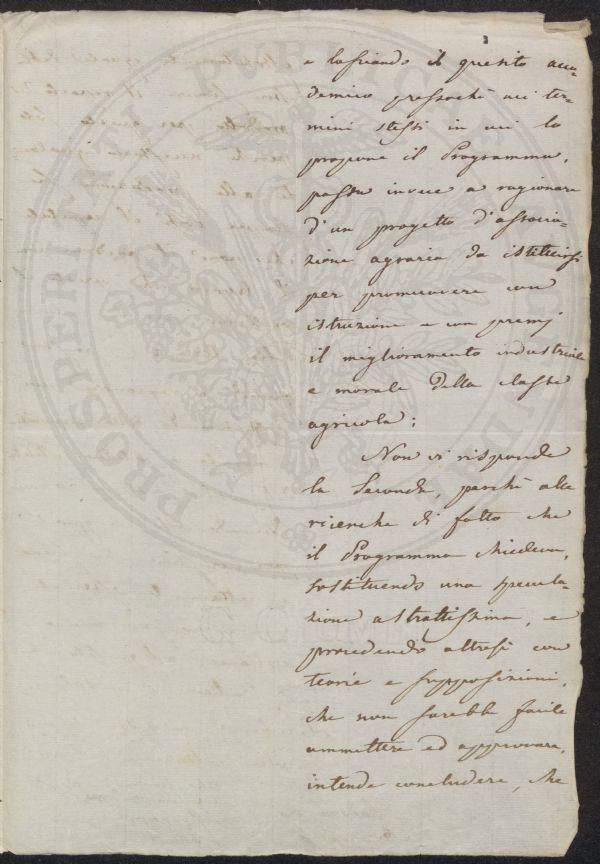 e lasciando il quesito acca-
demico pressochè nei ter-
mini stessi in cui lo
propone il Programma,
passa invece a ragionare
d'un progetto d'associa-
zione agraria da istituirsi
per promuovere con
istruzione e con premj
il miglioramento industriale
e morale della classe
agricola;
Non vi risponde
la Seconda, perchè alle
ricerche di fatto che
il Programma chiedeva,
sostituendo una specula-
zione astrattissima, e
procedendo altresì con
teorie e supposizioni,
che non sarebbe facile
ammettere ed approvare,
intende concludere, che
PROSPERITATI PUBLICAE